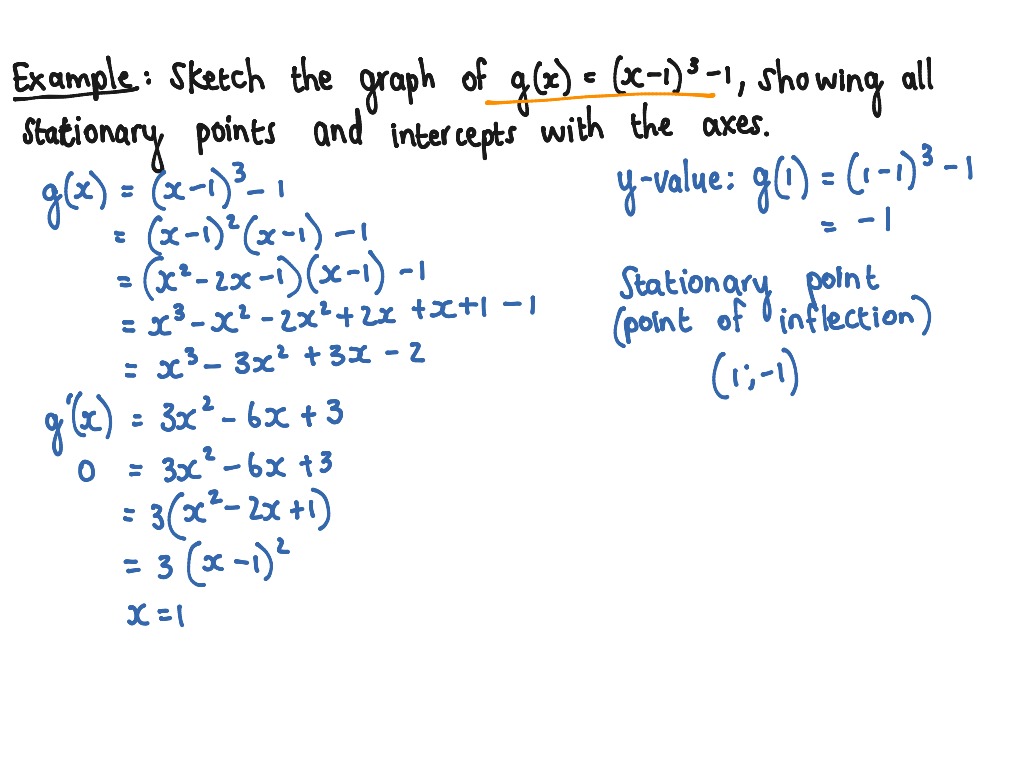 Example: Sketch the graph of g(x) = (x-1)³ -1, showing all
stationary points and intercepts with the axes.
g(x) = (x-1)³ - 1
= (x-1)² (x-1) -1
= (x² - 2x -1)(x-1) -1
= x³ - x² - 2x² + 2x + x + 1 - 1
= x³ - 3x² + 3x - 2
g'(x) = 3x² - 6x + 3
0 = 3x² - 6x + 3
= 3(x² - 2x + 1)
= 3 (x -1)²
x = 1
y-value: g(1) = (1-1)³ - 1
= -1
Stationary point
(point of inflection)
(1;-1)